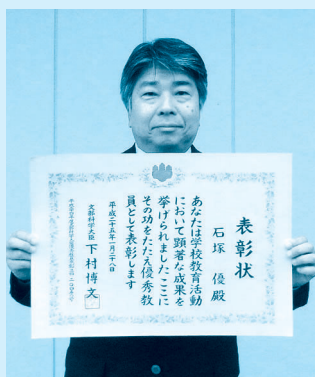 表彰状
石塚 優殿
あなたは学校教育活動
において顕著な成果を
挙げられましたここに
その功をたたえ優秀教
員として表彰します
平成二十五年一月二十八日
文部科学大臣 下村博文